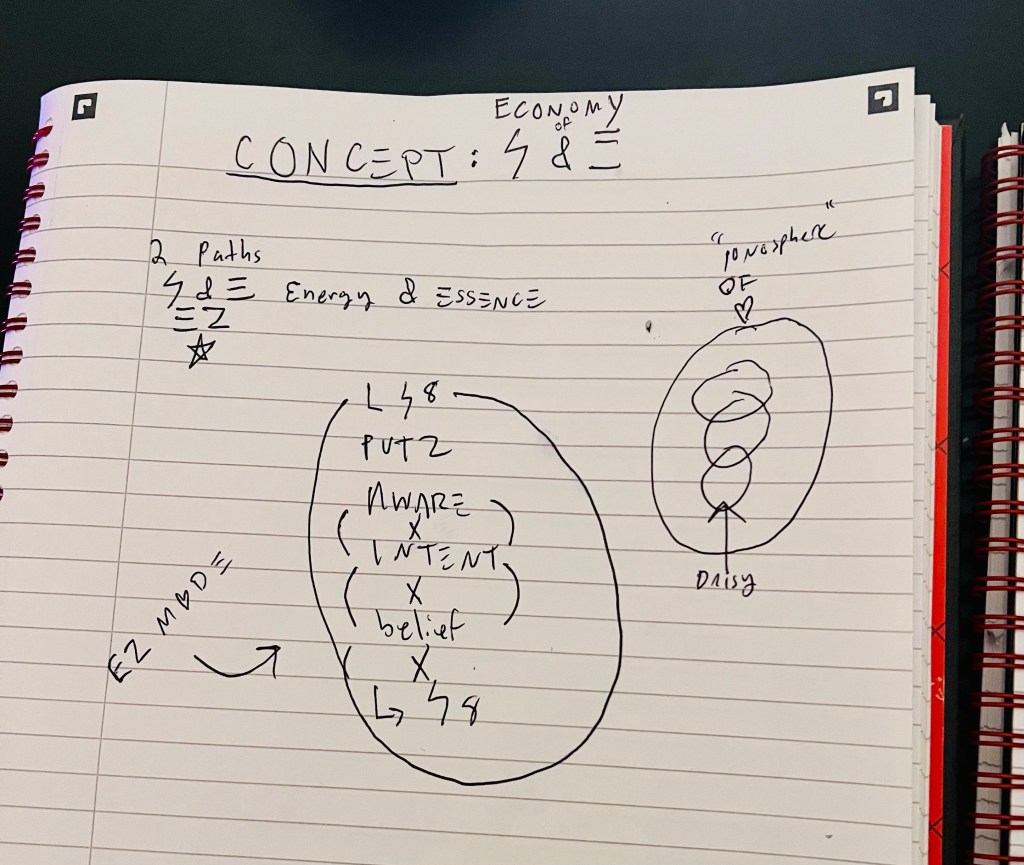 ECONOMY
OF
CONCEPT: ϟ & Ξ
2 Paths
ϟ & Ξ Energy & ESSENCE
ΞZ
☆
L ϟ 8
PUT 2
AWARE
X
INTENT
X
belief
X
L, ϟ 8
EZ
"IONosphere"
OF
♡
Daisy